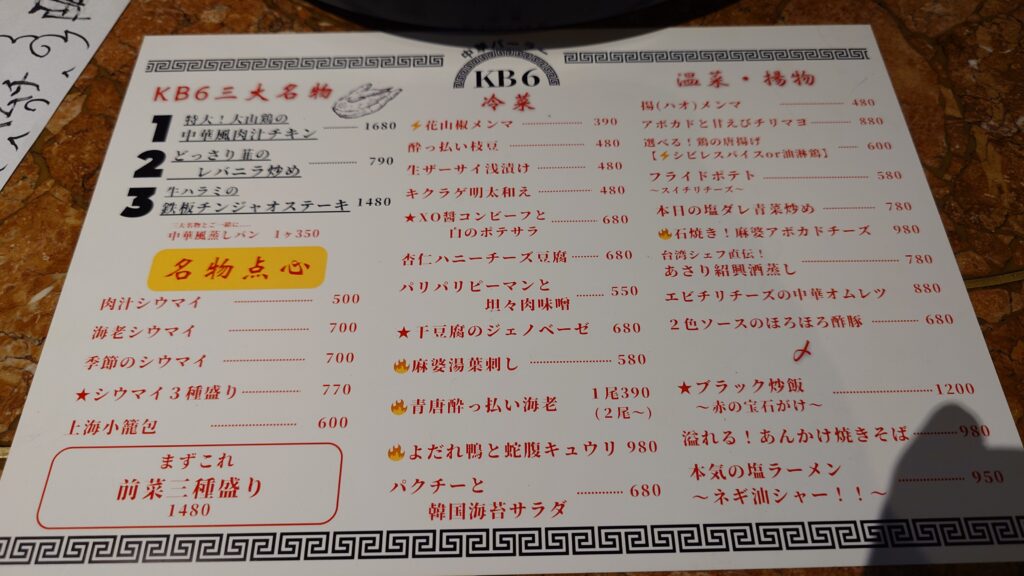 中華バニラ
KB6
KB6三大名物
1 特大！大山鶏の
中華風肉汁チキン 1680
2 どっさり韮の
レバニラ炒め 790
3 牛ハラミの
鉄板チンジャオステーキ 1480
三大名物とご一緒に……
中華風蒸しパン 1ヶ350
名物点心
肉汁シウマイ 500
海老シウマイ 700
季節のシウマイ 700
★シウマイ3種盛り 770
上海小籠包 600
まずこれ
前菜三種盛り
1480
冷菜
⚡花山椒メンマ 390
酔っ払い枝豆 480
生ザーサイ浅漬け 480
キクラゲ明太和え 480
★XO醤コンビーフと
白のポテサラ 680
杏仁ハニーチーズ豆腐 680
パリパリピーマンと
坦々肉味噌 550
★干豆腐のジェノベーゼ 680
🔥麻婆湯葉刺し 580
🔥青唐酔っ払い海老 1尾390
（2尾〜）
🔥よだれ鴨と蛇腹キュウリ 980
パクチーと
韓国海苔サラダ 680
温菜・揚物
揚(ハオ)メンマ 480
アボカドと甘えびチリマヨ 880
選べる！鶏の唐揚げ
【⚡シビレスパイスor油淋鶏】 600
フライドポテト 580
〜スイチリチーズ〜
本日の塩ダレ青菜炒め 780
🔥石焼き！麻婆アボカドチーズ 980
台湾シェフ直伝！
あさり紹興酒蒸し 780
エビチリチーズの中華オムレツ 880
2色ソースのほろほろ酢豚 680
〆
★ブラック炒飯 1200
〜赤の宝石がけ〜
溢れる！あんかけ焼きそば 980
本気の塩ラーメン
〜ネギ油シャー！！〜 950